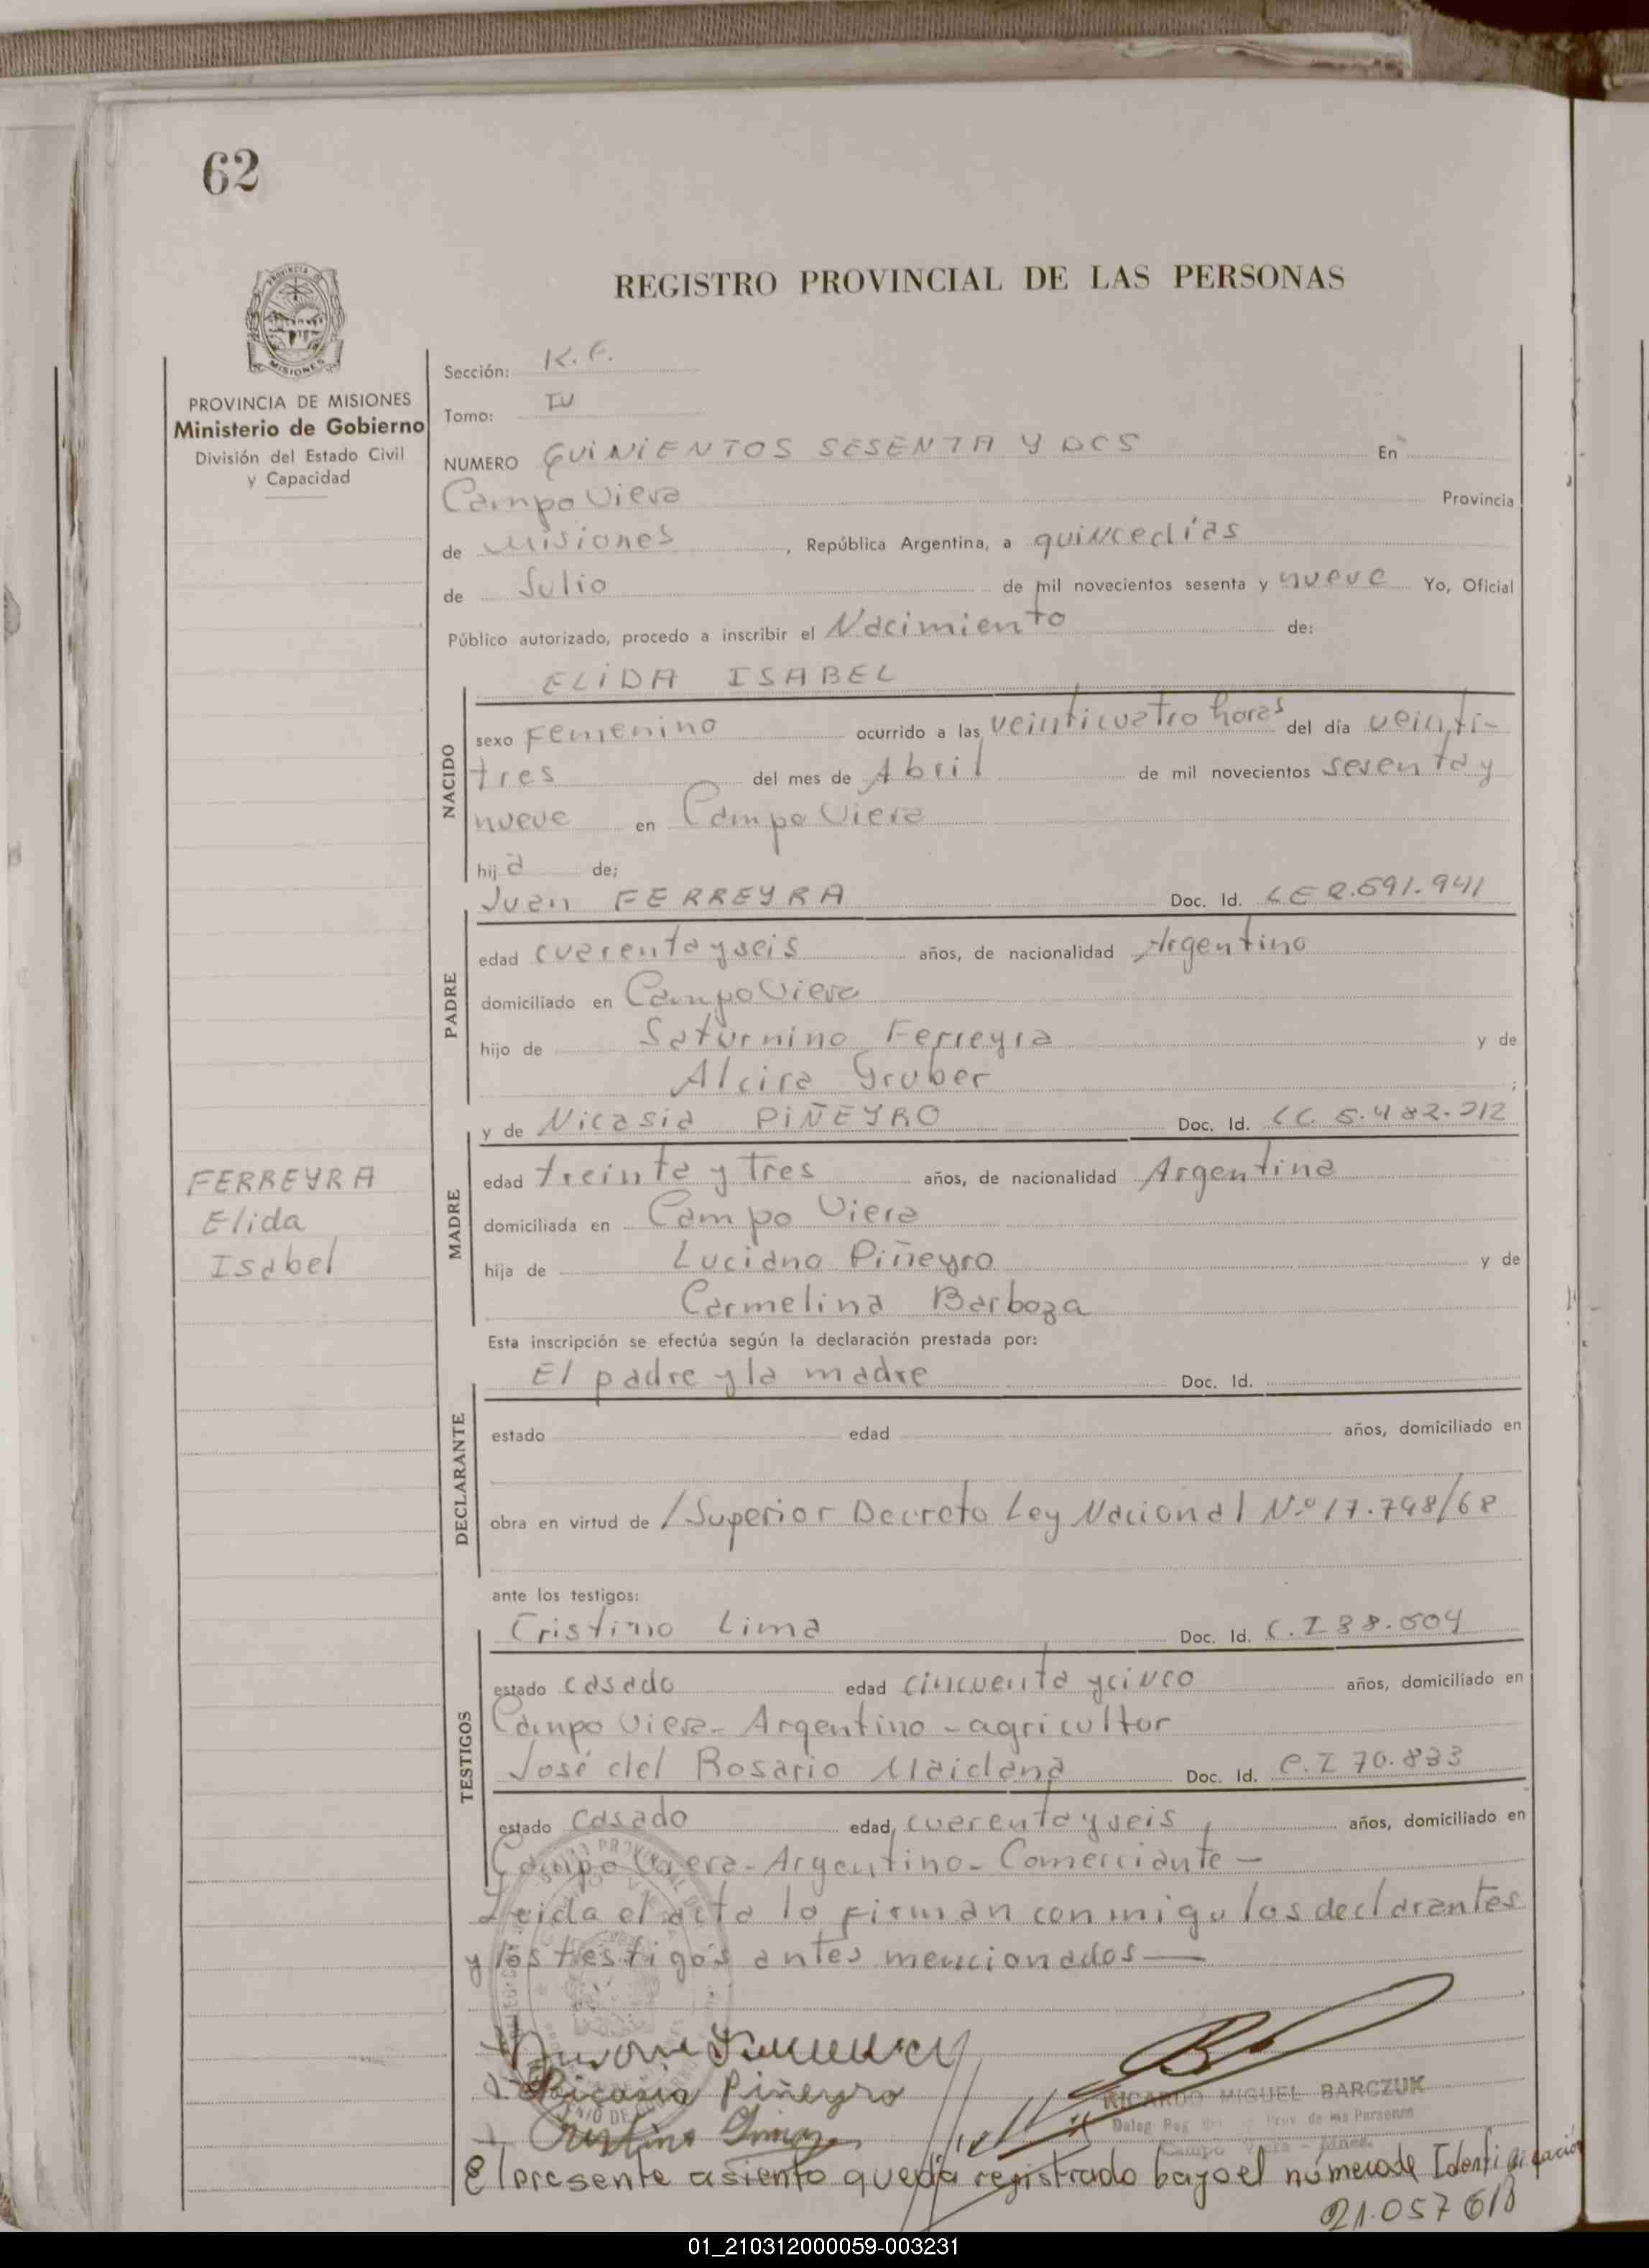 62
REGISTRO PROVINCIAL DE LAS PERSONAS
PROVINCIA
MISIONES
PROVINCIA DE MISIONES
Ministerio de Gobierno
División del Estado Civil
y Capacidad
Sección: K. F.
Tomo: IV
NUMERO QUINIENTOS SESENTA Y DOS En
Campo Viera Provincia
de Misiones, República Argentina, a quince días
de Julio de mil novecientos sesenta y nueve Yo, Oficial
Público autorizado, procedo a inscribir el Nacimiento de:
ELIDA ISABEL
NACIDO
sexo Femenino ocurrido a las veinticuatro horas del día veinti-
tres del mes de Abril de mil novecientos sesenta y
nueve en Campo Viera
hija de;
Juan FERREYRA Doc. Id. LE 2.591.941
PADRE
edad cuarenta y seis años, de nacionalidad Argentino
domiciliado en Campo Viera
hijo de Saturnino Ferreyra y de
Alcira Gruber ;
y de Nicasia PIÑEYRO Doc. Id. LC. 5.482.212
MADRE
edad treinta y tres años, de nacionalidad Argentina
domiciliada en Campo Viera
hija de Luciano Piñeyro y de
Carmelina Barboza
FERREYRA
Elida
Isabel
Esta inscripción se efectúa según la declaración prestada por:
El padre y la madre Doc. Id.
DECLARANTE
estado edad años, domiciliado en
obra en virtud de /Superior Decreto Ley Nacional N.º 17.798/68
ante los testigos:
Cristino Lima Doc. Id. C.I 38.504
TESTIGOS
estado casado edad cincuenta y cinco años, domiciliado en
Campo Viera- Argentino - agricultor
José del Rosario Maidana Doc. Id. C.I 70.833
estado casado edad cuarenta y seis años, domiciliado en
Campo Viera- Argentino- Comerciante-
Leida el acta la firman conmigo los declarantes
y los testigos antes mencionados—
Nicasia Piñeyro
Cristino Lima
RICARDO MIGUEL BARCZUK
Prov. de las Personas
Campo Viera - Mnes.
El presente asiento queda registrado bajo el número de Identificación
21.057618
01_210312000059-003231